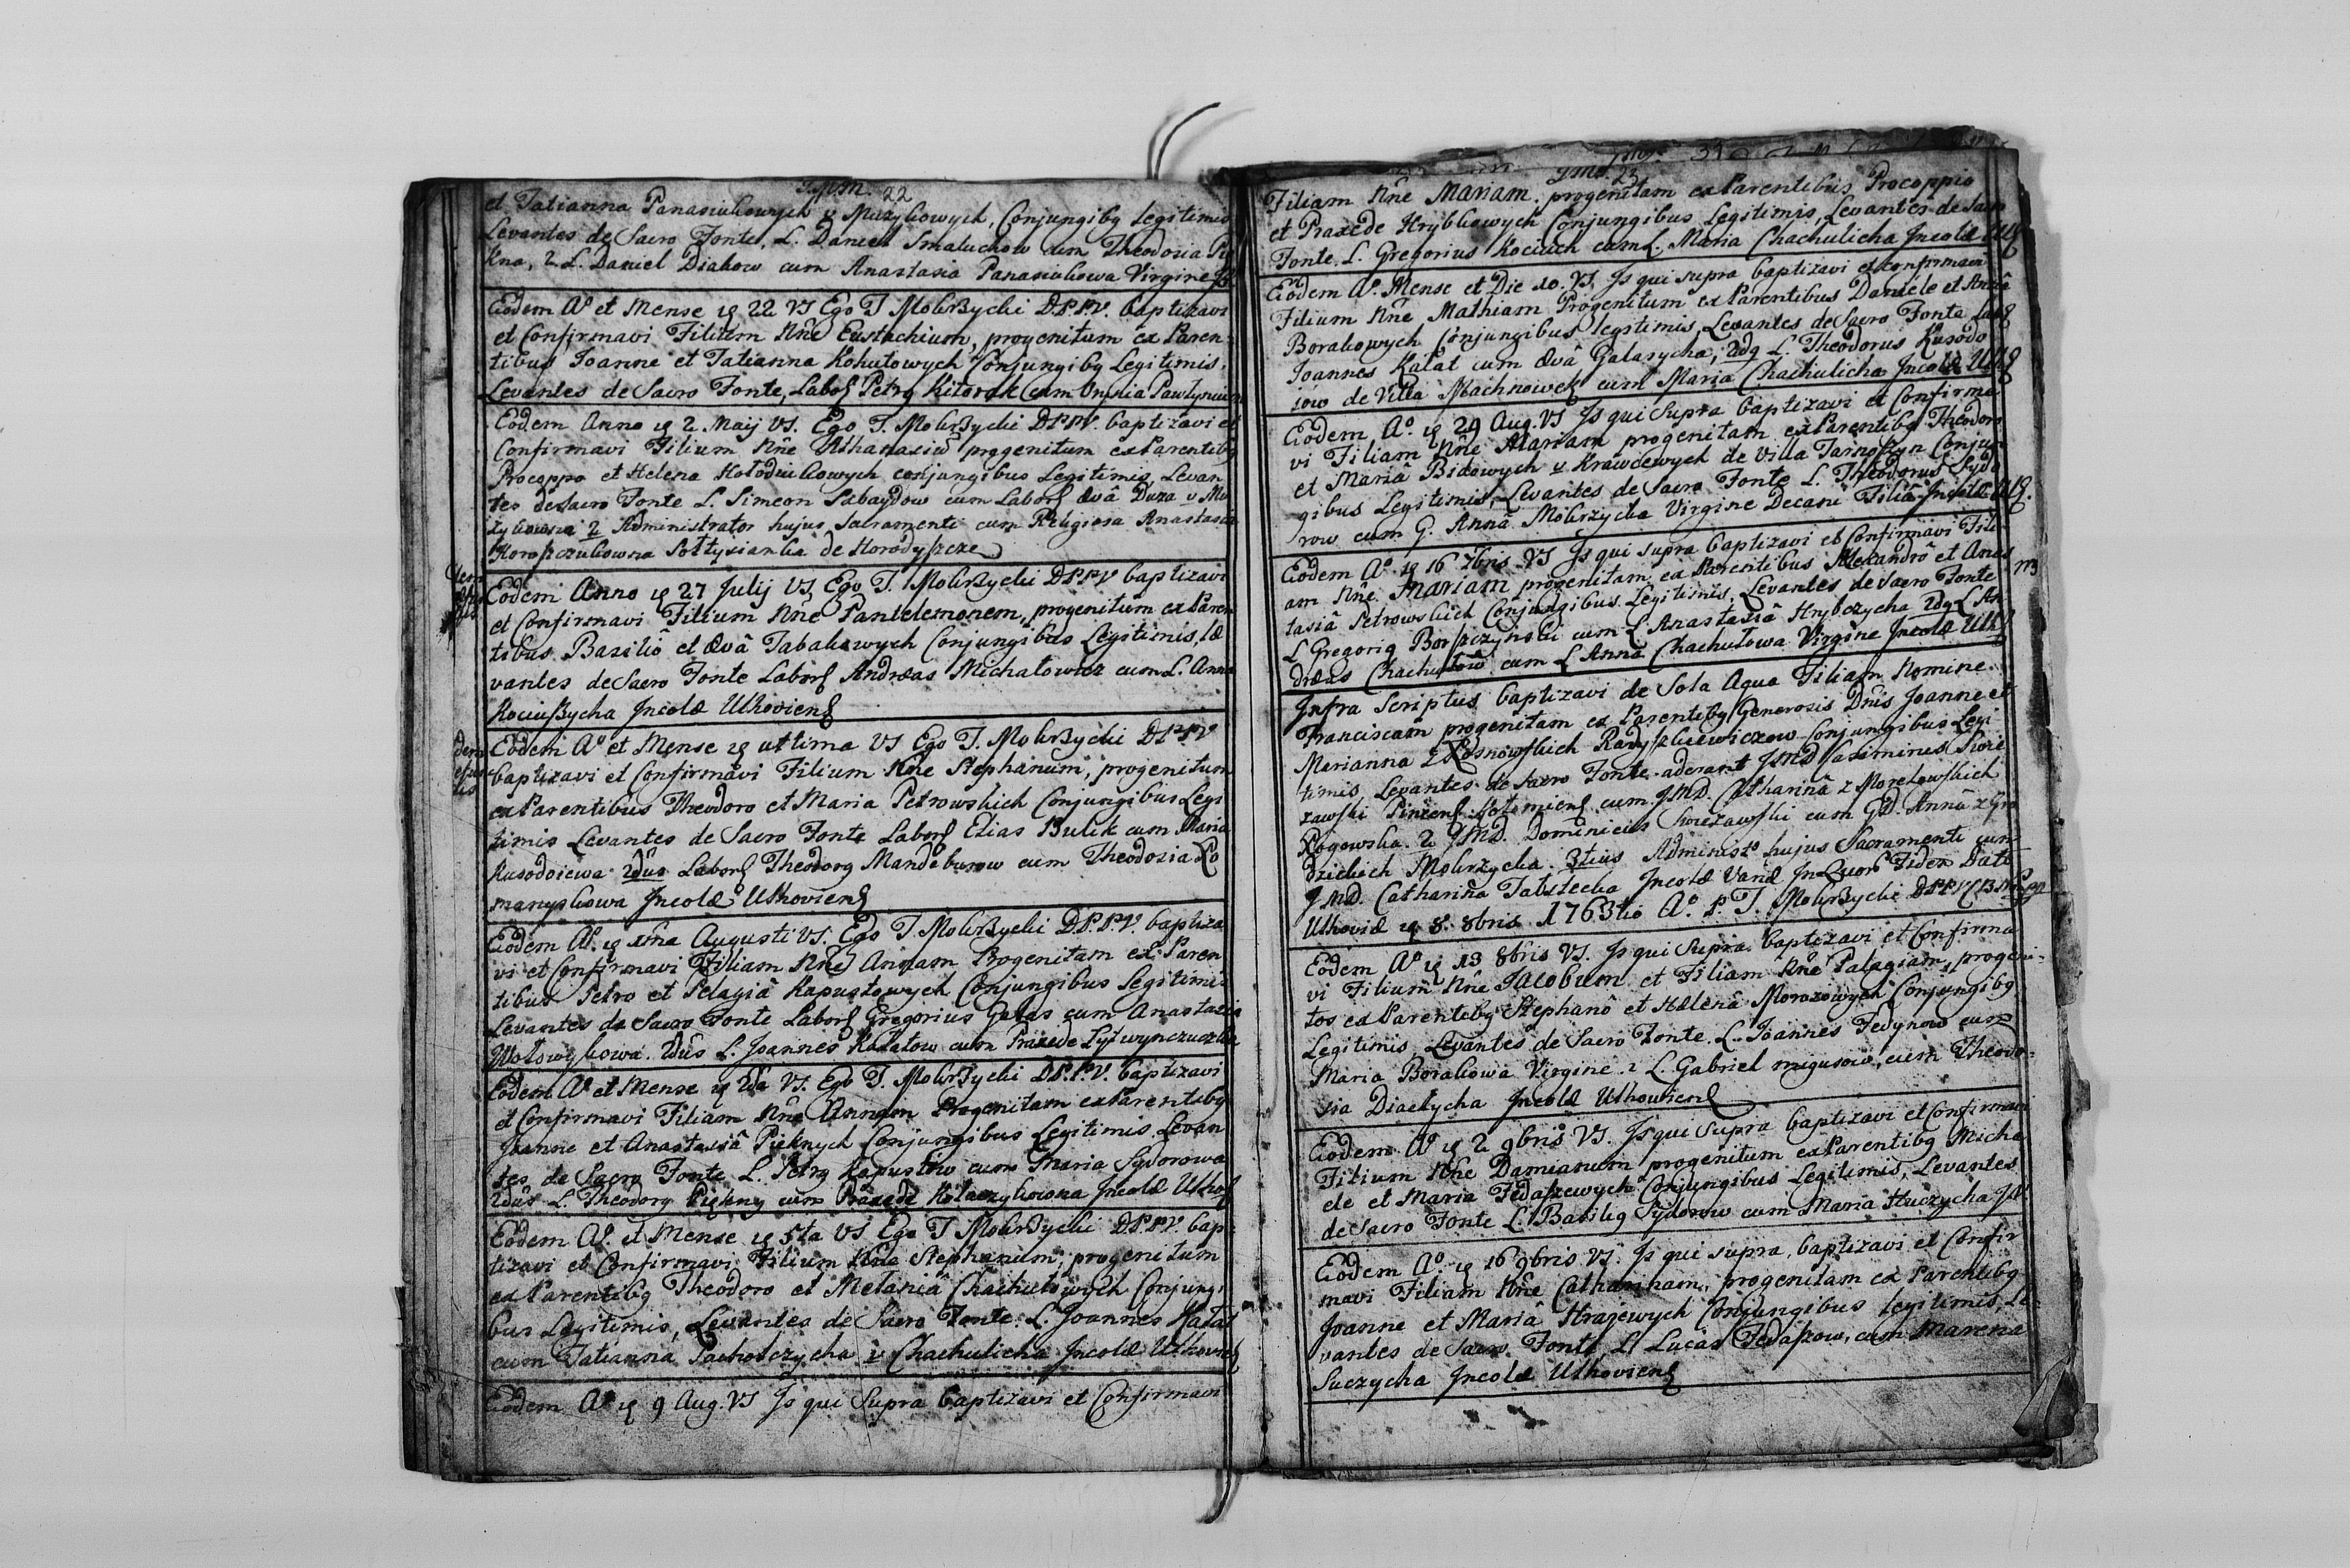 22
et Tatianna Panasiukowych v Muzykowych, Conjungibq legitimis
Levantes de Sacro Fonte, L. Daniel Smaluchow cum Theodoria
kna, 2 L. Daniel Diakow cum Anastasia Panasiukowa Virgine
Eodem Ao et Mense 22 VS Ego T Mokrzycki D.P.P.V. baptizavi
et Confirmavi Filium Nne Eustachium, progenitum ex Paren
tibus Joanne et Tatianna Kohutowych Conjungibq Legitimis.
Levantes de Sacro Fonte, Labor Petrq Kitorak cum
Eodem Anno 2 Maij VS. Ego T. Mokrzycki D.P.P.V. baptizavi et
Confirmavi Filium Nne Athanasiu progenitum ex Parentibq
Procoppo et Helena Hołodniukowych conjungibus Legitimis, Levan
tes de Sacro Fonte L. Simeon Sabaydow cum Labor Ævâ Duza v Mu
zykowna 2 Administrator hujus Sacramenti cum Religiosa Anastasia
Horoszczukowna Sołtysianka de Horodyszcze
Eodem Anno 27 Julij VS, Ego T. Mokrzycki D.P.P.V baptizavi
et Confirmavi Filium Nne Pantelemonem, progenitum ex Paren
tibus Basiliô et Ævâ Tabakowych Conjungibus Legitimis, Le
vantes de Sacro Fonte Labor Andræas Michałowicz cum L. Anna
Kociuszycha Incolæ Uhrovien
Eodem Ao et Mense ultima VS Ego T. Mokrzycki D.P.P.V
baptizavi et Confirmavi Filium Nne Stephanum, progenitum
ex Parentibus Theodoro et Maria Petrowskich Conjungibus Legi
timis Levantes de Sacro Fonte Labor Elias Bulik cum Maria
Kusodoiewa 2dus Labor Theodorq Mandeburow cum Theodosia Ro
manyukowa Incolæ Uhrovien
Eodem Ao. 1ma Augusti VS. Ego T. Mokrzycki D.P.P.V. baptiza
vi et Confirmavi Filiam Nne Annam Progenitam ex Paren
tibus Petro et Pelagiâ Kapustowych Conjungibus Legitimis
Levantes de Sacro Fonte Labor Gregorius Galas cum Anastasia
Wołowykowa. 2dus L. Joannes Kałatow cum Praxede Lytwynczuczka
Eodem Ao et Mense 2da VS. Ego T. Mokrzycki D.P.P.V. baptizavi
et Confirmavi Filiam Nne Annam Progenitam ex Parentibq
Joanne et Anastasiâ Pieknych Conjungibus Legitimis Levan
tes de Sacro Fonte L. Petrq Kapustiw cum Maria Sydorowa
2dus L. Theodorq Piękny cum Praxede Kołaczykowna Incolæ Uhrov
Eodem Ao. et Mense 5ta VS Ego T Mokrzycki D.P.P.V. bap
tizavi et Confirmavi Filium Nne Stephanum, progenitum
ex Parentibq Theodoro et Melaniâ Chachułowych Conjungi
bus Legitimis, Levantes de Sacro Fonte. L. Joannes Kałat
cum Tatianna Pachołczycha v Chachulicha Incolæ Uhrovien
Eodem Ao 9 Aug. VS Is qui Supra baptizavi et Confirmavi
23
Filiam Nne Mariam. progenitam ex Parentibus Procoppio
et Praxede Hrybkowych Conjungibus Legitimis, Levantes de Sacro
Fonte. L. Gregorius Kociuch cum L. Maria Chachulicha Incolæ
Eodem Ao. Mense et Die 10. VS, Is qui supra baptizavi et confirmavi
Filium Nne Mathiam Progenitum ex Parentibus Daniele et Annâ
Borakowych Conjungibus legitimis, Levantes de Sacro Fonte Lab
Joannes Kałat cum Ævâ Galasycha, 2dq L. Theodorus Kusodo
iow de Villa Machnowek cum Maria Chachulicha Incolæ
Eodem Ao. 29 Aug. VS Is qui Supra baptizavi et Confirma
vi Filiam Nne Mariam progenitam ex Parentibq Theodoro
et Mariâ Bidowych v Krawcewych de Villa Tarnohyn Conjun
gibus Legitimis, Levantes de Sacro Fonte L. Theodorus Sydo
row cum G. Annâ Mokrzycka Virgine Decani Filiâ Incolæ
Eodem Ao 16 7bris VS Is qui supra baptizavi et Confirmavi Fili
am Nne Mariam progenitam ex Parentibus Alexandrô et Anas
tasiâ Petrowskich Conjungibus Legitimis, Levantes de Sacro Fonte
L Gregoriq Borszczynski cum L Anastasiâ Hrybczycha 2dq L An
dræas Chachułow cum L Annâ Chachułowa Virgine Incolæ
Infra Scriptus baptizavi de Sola Aqua Filiam Nomine
Franciscam progenitam ex Parentibq Generosis Dnis Joanne et
Marianna z Kosnowskich Radyszkiewiczow Conjungibus Legi
timis, Levantes de Sacro Fonte aderant J.M.D Casimirus Swie
zawski cum J.M.D. Catharinâ z Morełowskich
Rogowska. 2 J.M.D. Dominicus Swiezawski cum G.D. Annâ z Gro
dzickich Mokrzycka. 3tius Administ. hujus Sacramenti cum
J.M.D. Catharina Incolæ Variæ In Quor Fidem Dati
Uhroviæ 8. 8bris 1763tio Ao. P.T. Mokrzycki D.P.P.V.
Eodem Ao 13 8bris VS. Is qui Supra baptizavi et Confirma
vi Filium Nne Jacobum et Filiam Nne Palagiam, progeni-
tos ex Parentibq Stephanô et Helenâ Morozowych Conjungibq
Legitimis, Levantes de Sacro Fonte. L. Joannes Fedynow cum
Maria Borakowa Virgine. 2 L. Gabriel migusow, cum Theodo-
sia Diaczycha Incolæ Uhrovien
Eodem Ao 2 9bris VS. Is qui Supra baptizavi et Confirmavi
Filium Nne Damianum progenitum ex Parentibq Micha
ele et Maria Fedaszewych Conjungibus Legitimis, Levantes
de Sacro Fonte L. Basiliq Sydorow cum Maria Huczycha
Eodem Ao. 16 9bris VS. Is qui supra, baptizavi et Confir
mavi Filiam Nne Catharinam, progenitam ex Parentibq
Joanne et Mariâ Hrajewych Conjungibus legitimis, Le-
vantes de Sacro Fonte, L Lucas Fedaszow, cum Marena
Suczycha Incolæ Uhrovien